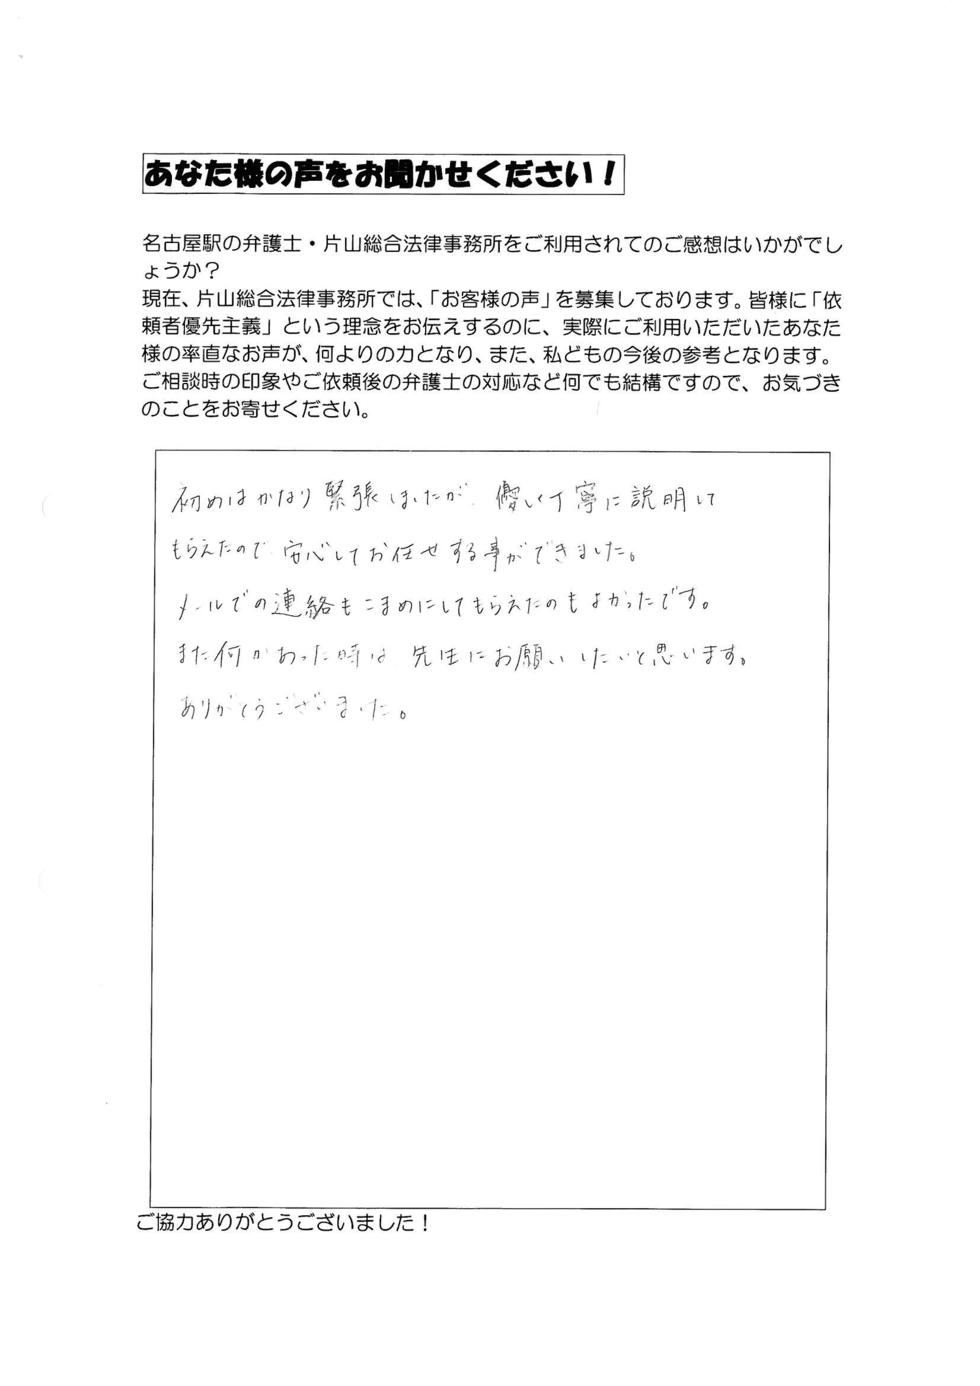 あなた様の声をお聞かせください！
名古屋駅の弁護士・片山総合法律事務所をご利用されてのご感想はいかがでし
ょうか？
現在、片山総合法律事務所では、「お客様の声」を募集しております。皆様に「依
頼者優先主義」という理念をお伝えするのに、実際にご利用いただいたあなた
様の率直なお声が、何よりの力となり、また、私どもの今後の参考となります。
ご相談時の印象やご依頼後の弁護士の対応など何でも結構ですので、お気づき
のことをお寄せください。
初めはかなり緊張しましたが、優しく丁寧に説明して
もらえたので、安心してお任せする事ができました。
メールでの連絡もこまめにしてもらえたのもよかったです。
また何かあった時は、先生にお願いしたいと思います。
ありがとうございました。
ご協力ありがとうございました！